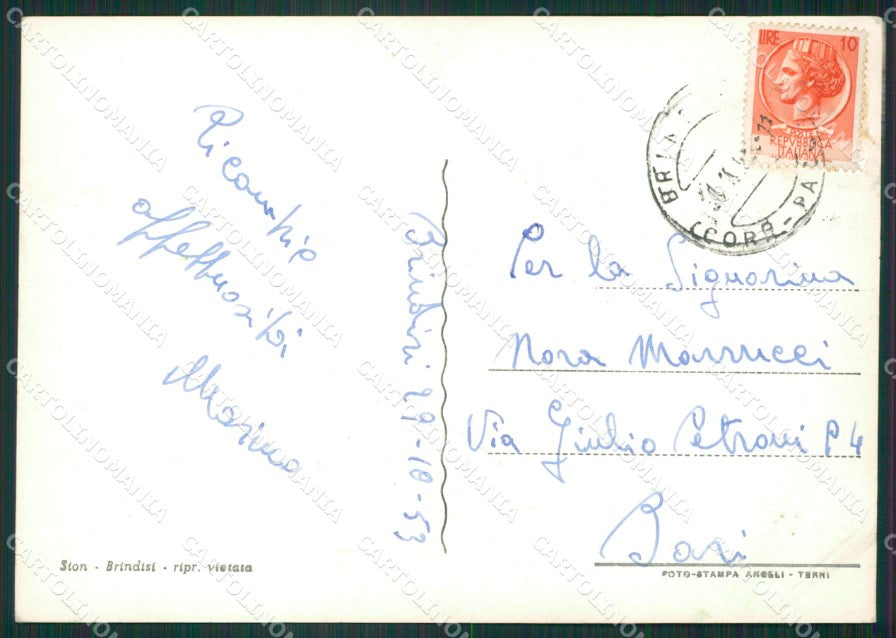 LIRE 10
REPVBBLICA
ITALIANA
BRIN
CORR-PA
Ricambio
affettuosità
Marina
Brindisi 29-10-53
Per la Signorina
Nora Marrucci
Via Giulio Petroni P 4
Bari
Sion - Brindisi - ripr. vietata
FOTO-STAMPA ANGELI - TERNI
CARTOLINOMANIA